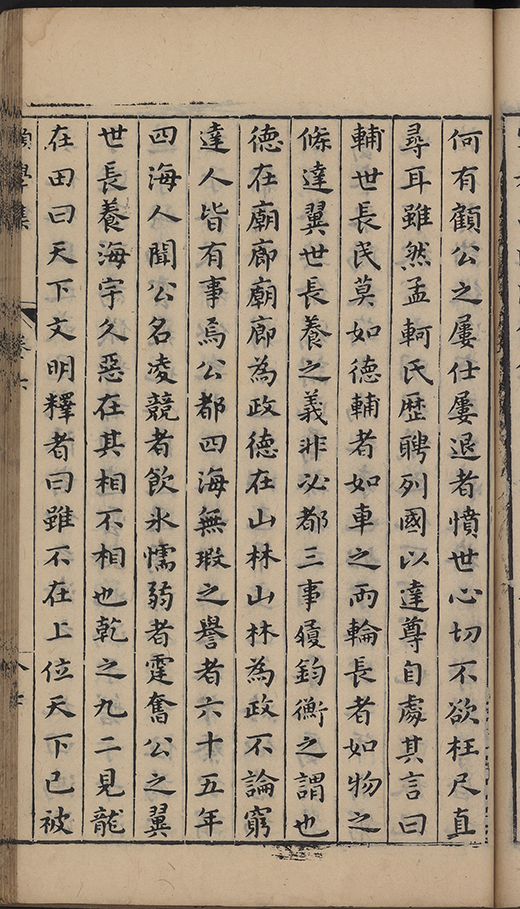 何有顧公之屢仕屢退者憤世心切不欲枉尺直
尋耳雖然孟軻氏歴聘列國以達尊自處其言曰
輔世長民莫如德輔者如車之兩輪長者如物之
條達翼世長養之義非必都三事履鈞衡之謂也
德在廟廊廟廊為政德在山林山林為政不論窮
達人皆有事焉公都四海無瑕之譽者六十五年
四海人聞公名凌競者飲氷懦弱者霆奮公之翼
世長養海宇久惡在其相不相也乾之九二見龍
在田曰天下文明釋者曰雖不在上位天下已被